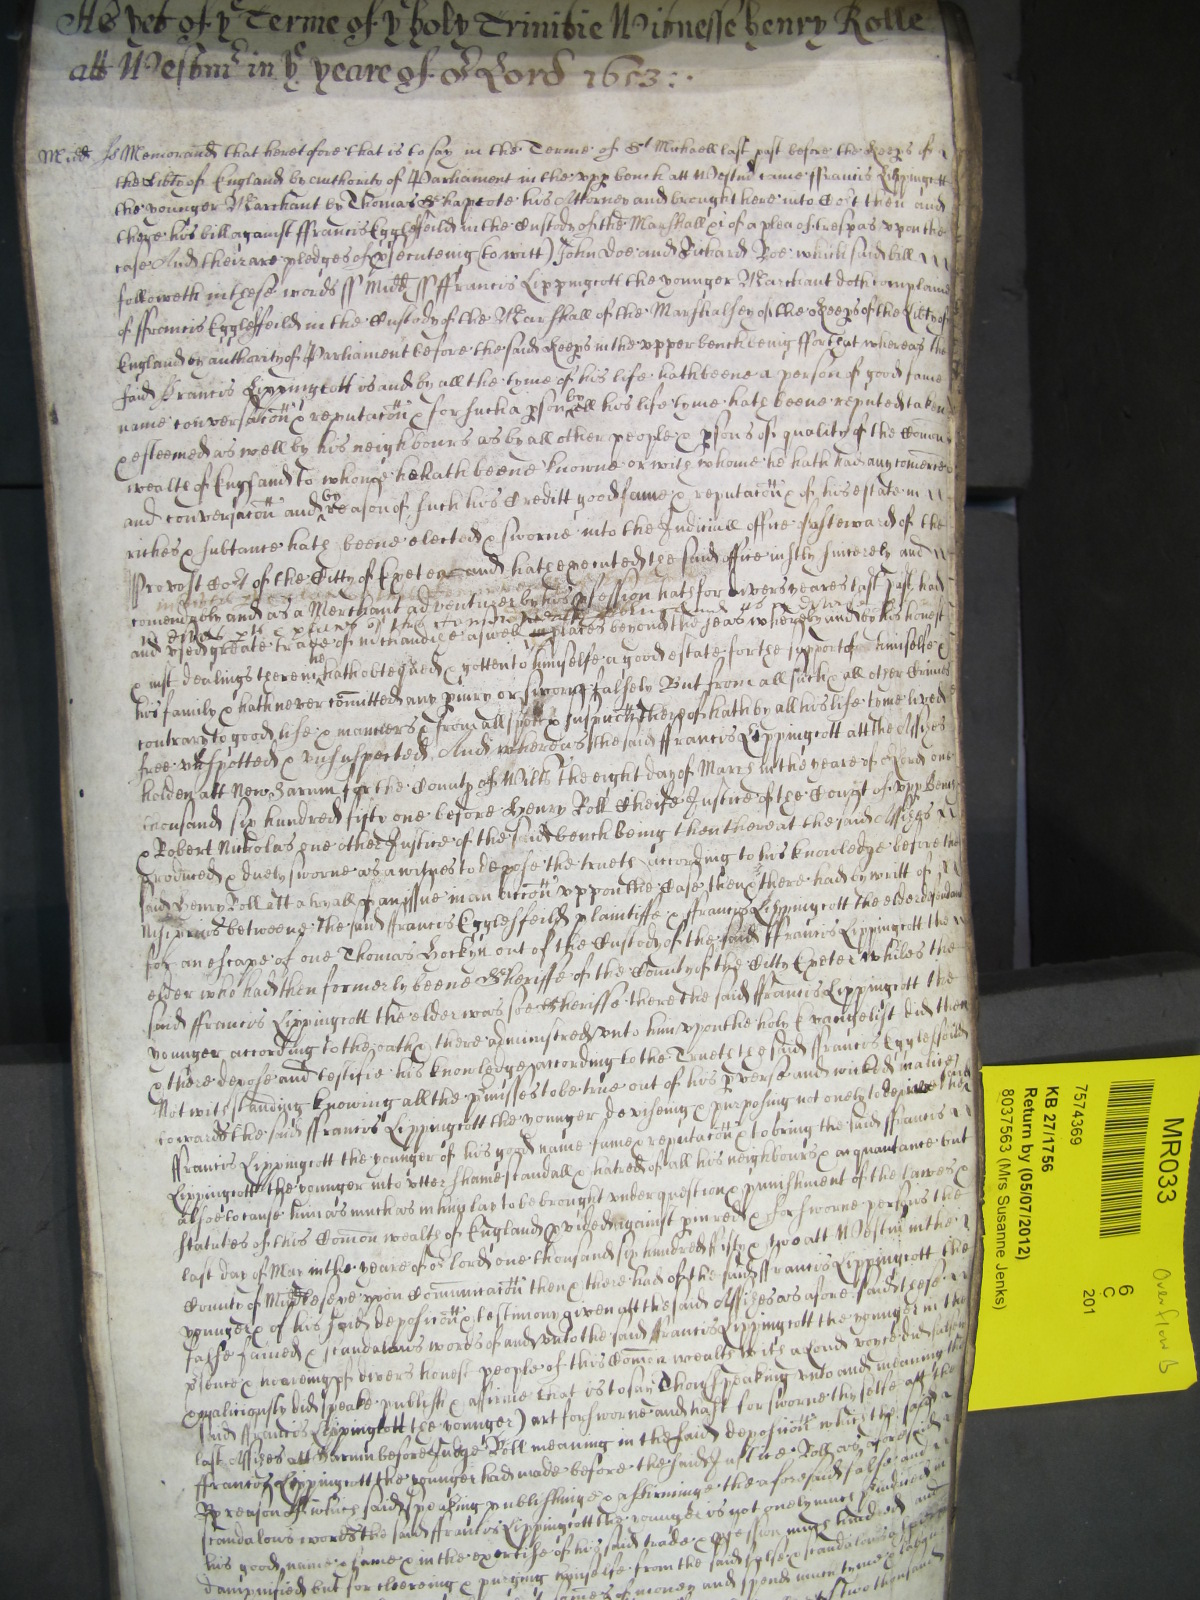 As yet of ye Terme of ye holy Trinitie Witnesse henry Rolle
att Westmr in ye yeare of or Lord 1653:.
Midd ss Memorand that heretofore that is to say in the Terme of St Michaell last past before the Keeps of
the Libtie of England by authority of Parliament in the upp bench att Westm came ffrancis Lippingcott
the younger Marchant by Thomas Shapcote his Attorney and brought here into Cort then and
there his bill against ffrancis Egglesfeild in the Custody of the Marshall &c of a plea of trespas upon the
case And their are pledges of psecuteing (to witt) John Doe and Richard Roe which said bill
followeth in these words ss Midd ss ffrancis Lippingcott the younger Marchant doth complaine
of ffrancis Egglesfeild in the Custody of the Marshall of the Marshalsey of the Keeps of the Libty of
England by authority of Parliament before the said Keeps in the upper bench being ffor that whereas the
said ffrancis Lippingcott is and by all the tyme of his life hath beene a person of good fame
name conversacon & reputacon & for such a pson by all his life tyme hath beene reputed taken
& esteemed as well by his neighbours as by all other people & psons of quality of the Comon
wealth of England to whome he hath beene knowne or with whome he hath had any comerce
and conversacon and by reason of such his Creditt good fame & reputacon & of his estate in
riches & substance hath beene elected & sworne into the Judiciall office of steward of the
Provost Cort of the Citty of Exeter and hath executed the said office iustly sincerely and
comendably and as a Merchant adventurer by his pfession hath for divers yeares last past had
and used greate trade of mchandice aswell in places beyond the seas whereby and by his honest
& iust dealings therein he hath obteyned & gotten to himselfe a good estate for the support of himselfe &
his family & hath never comitted any piury or sworne falsely But from all such & all other Crimes
contrary to good life & manners & from all spott & suspicon thereof hath by all his life tyme lived
free unspotted & unsuspected And whereas the said ffrancis Lippingcott att the Assizes
holden att New Sarum for the County of Wilts the eight day of March in the yeare of or Lord one
thousand six hundred fifty one before Henry Roll Cheife Justice of the Court of upp Bench
& Robert Nicholas one other Justice of the said bench being then there at the said Assizes
produced & duely sworne as a witnes to depose the trueth according to his knowledge before the
said Henry Roll att a tryall of an issue in an accon uppon the Case then & there had by writt of
Nisi prius betweene the said ffrancis Egglesfeild plaintiffe & ffrancis Lippingcott the elder defendant
for an escape of one Thomas Hockyn out of the Custody of the said ffrancis Lippingcott the
elder who had then formerly beene Sheriffe of the County of the Citty Exeter whiles the
said ffrancis Lippingcott the elder was soe Sheriffe there the said ffrancis Lippingcott the
younger according to the oath & there administred unto him upon the holy Evangelist did then
& there depose and testifie his knowledge according to the Trueth the said ffrancis Egglesfeild
Notwithstanding knowing all the pmisses to be true out of his pverse and wicked malice
towards the said ffrancis Lippingcott the younger deviseing & purposing not onely to deprive the said
ffrancis Lippingcott the younger of his good name fame & reputacon & to bring the said ffrancis
Lippingcott the younger into utter shame scandall & hatred of all his neighbours & acquantance but
alsoe to cause him as much as in him lay to be brought under question & punishment of the lawes &
statutes of this Comon wealth of England pvided against piured & forsworne persons the
last day of May in the yeare of or lord one thousand six hundred fifty & two att Westm in the
County of Middlesex upon Comunicacon then & there had of the said ffrancis Lippingcott the
younger & of his said deposicon & testimony given att the said Assizes as aforesaid these
false fained & scandalous words of and unto the said ffrancis Lippingcott the younger in the
psence & heareing of divers honest people of this Comon wealth with a loud voyce did falsely
& maliciously did speake publish & affirme that is to say Thou (speaking unto and meaning the
said ffrancis Lippingcott the younger) art forsworne and hast forsworne thy selfe att the
last Assizes att Sarum before Judge Roll meaning in the said deposicon which the said
ffrancis Lippingcott the younger had made before the said Justice Roll as aforesaid
By reason of which said speaking publishinge & affirminge the aforesaid false and
scandalous words the said ffrancis Lippingcott the younger is not onely much preiudiced in
his good name & fame & in the exercise of his said trade & pfession much hindred and
dampnified but for cleereing & purging himselfe from the said false & scandalous
somes of money and spend much tyme & labour
of two thousand
MR033
7574369
KB 27/1756
Return by (05/07/2012)
8037563 (Mrs Susanne Jenks)
6
C
201
Overflow B